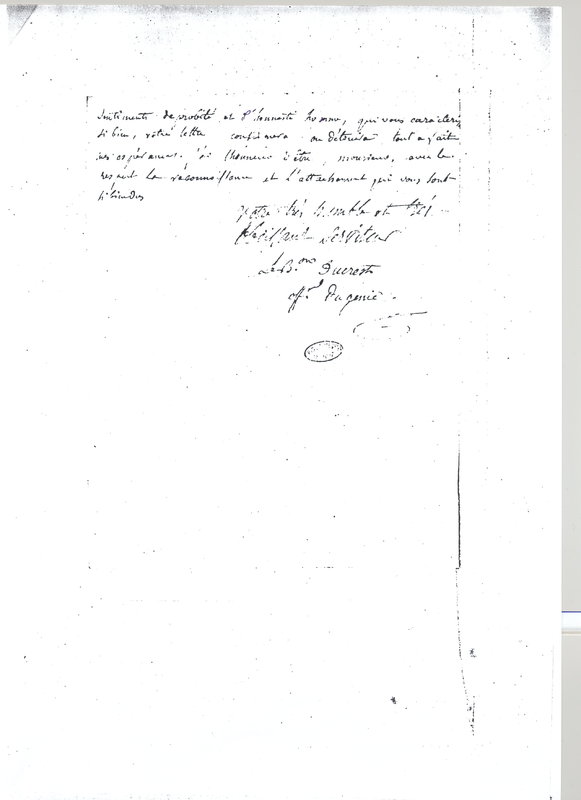 sentiments de probité et d'honnête homme, qui vous caractéris
si bien, votre lettre confirmera ou détruira tout a fait
mes espérances. j'ai l'honneur d'être, monsieur, avec la
reconnoissance et l'attachement qui vous sont
si bien dus
votre très humble et très
obéissant serviteur
Le B.on Ducrest
off.r Du génie.